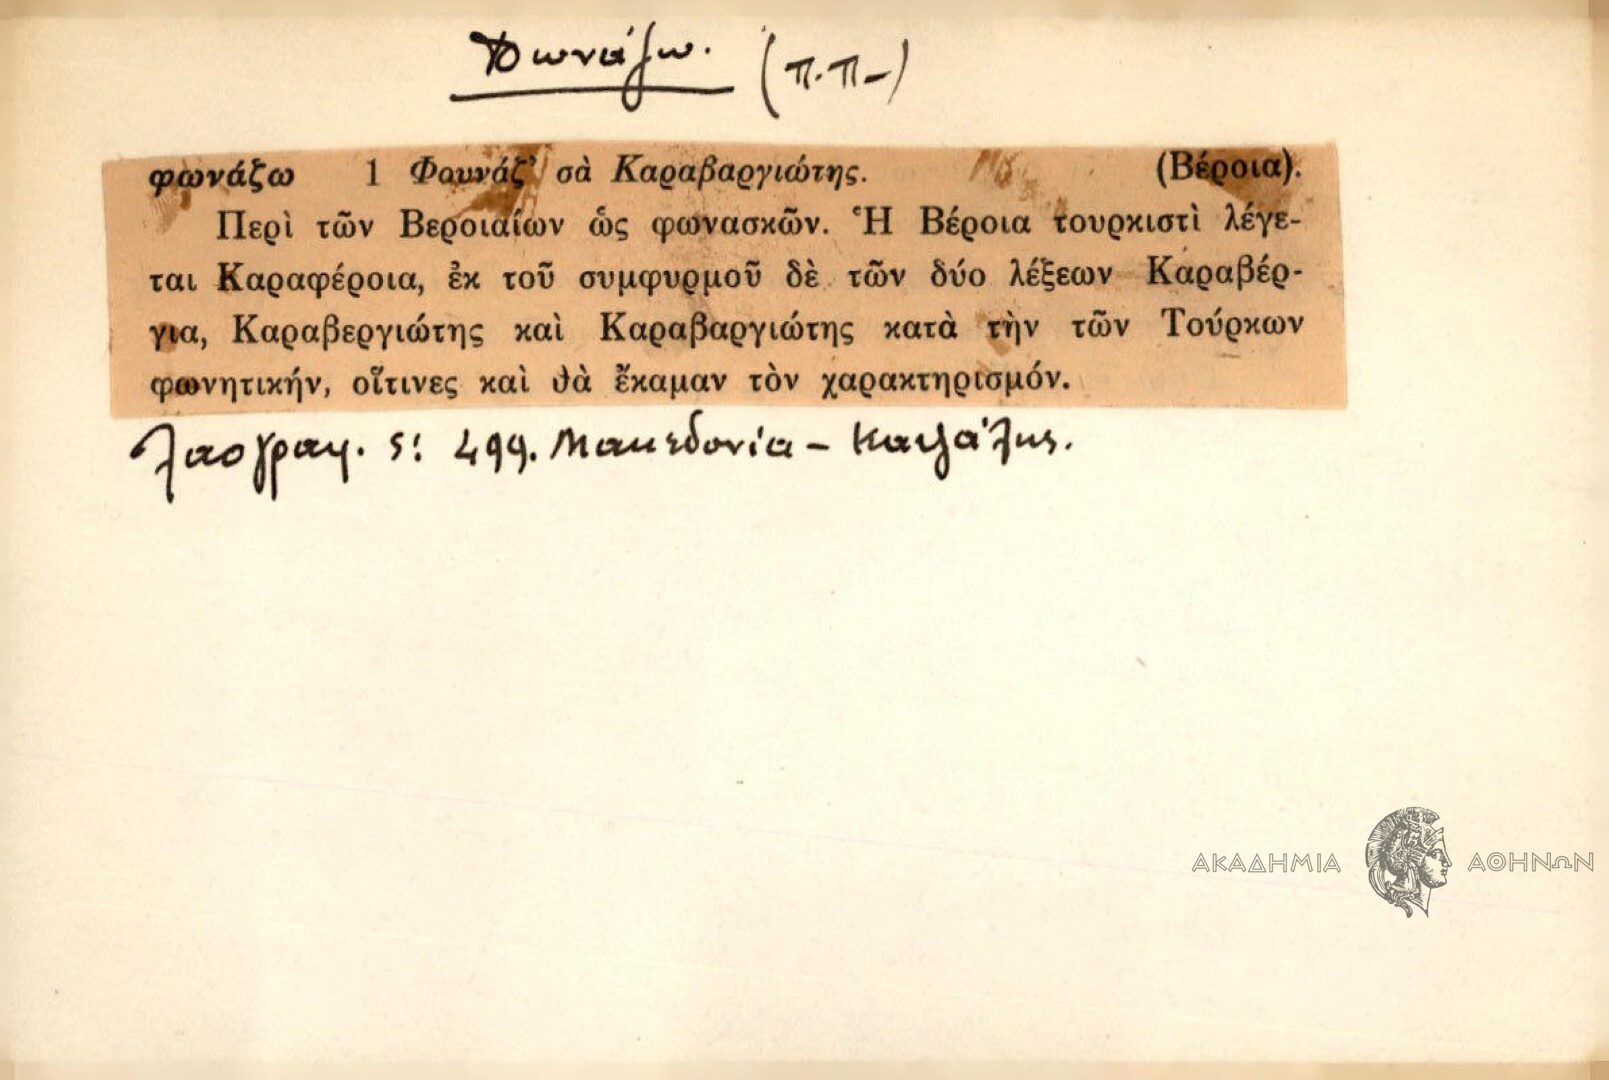 Φωνάζω. (π.π-)
φωνάζω 1 Φουνάζ' σὰ Καραβαργιώτης. (Βέροια).
Περὶ τῶν Βεροιαίων ὡς φωνασκῶν. Ἡ Βέροια τουρκιστὶ λέγε-
ται Καραφέροια, ἐκ τοῦ συμφυρμοῦ δὲ τῶν δύο λέξεων Καραβέρ-
για, Καραβεργιώτης καὶ Καραβαργιώτης κατὰ τὴν τῶν Τούρκων
φωνητικήν, οἵτινες καὶ θὰ ἔκαμαν τὸν χαρακτηρισμόν.
Λαογραφ. 499. Μακεδονία –
ΑΚΑΔΗΜΙΑ ΑΘΗΝΩΝ